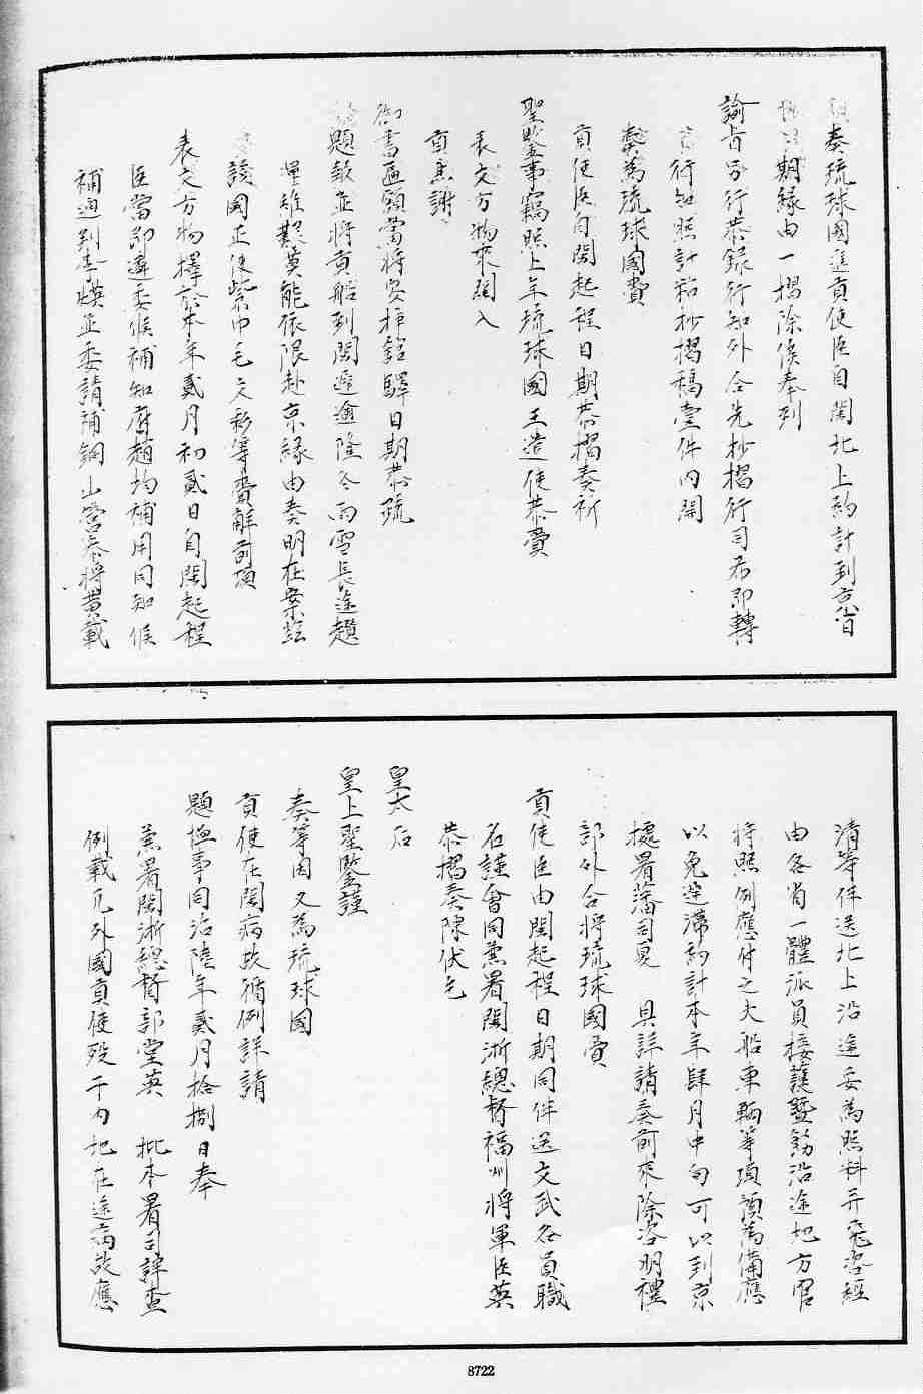 奏琉球國進貢使臣自閩北上約計到京省
期緣由一摺除俟奉到
諭旨另行恭錄行知外合先抄摺行司希即轉
行知照計粘抄摺稿壹件內開
奏為琉球國賫
貢使臣自閩起程日期恭摺奏祈
聖鑒事竊照上年琉球國王遣使恭賫
表文方物來閩入
貢恭謝
御書匾額當將安挿館驛日期恭疏
題報並將貢船到閩遲逾隆冬雨雪長途趲
運維艱莫能依限赴京緣由奏明在案茲
該國正使紫巾毛文彩等賫解前項
表文方物擇於本年貳月初貳日自閩起程
臣當即遴委候補知府趙均補用同知候
補通判李煐並委請補銅山營叅將黃載
清等伴送北上沿途妥為照料并飛咨經
由各省一體派員接護暨飭沿途地方官
將照例應付之夫船車輛等項預為備應
以免遲滯約計本年肆月中旬可以到京
據署藩司夏 具詳請奏前來除咨明禮
部外合將琉球國賫
貢使臣由閩起程日期同伴送文武各員職
名謹會同兼署閩浙總督福州將軍臣英
恭摺奏陳伏乞
皇太后
皇上聖鑒謹
奏等因又為琉球國
貢使在閩病故循例詳請
題恤事同治陸年貳月拾捌日奉
兼署閩浙總督部堂英 批本署司詳查
例載凡外國貢使歿于內地在途病故應
8722